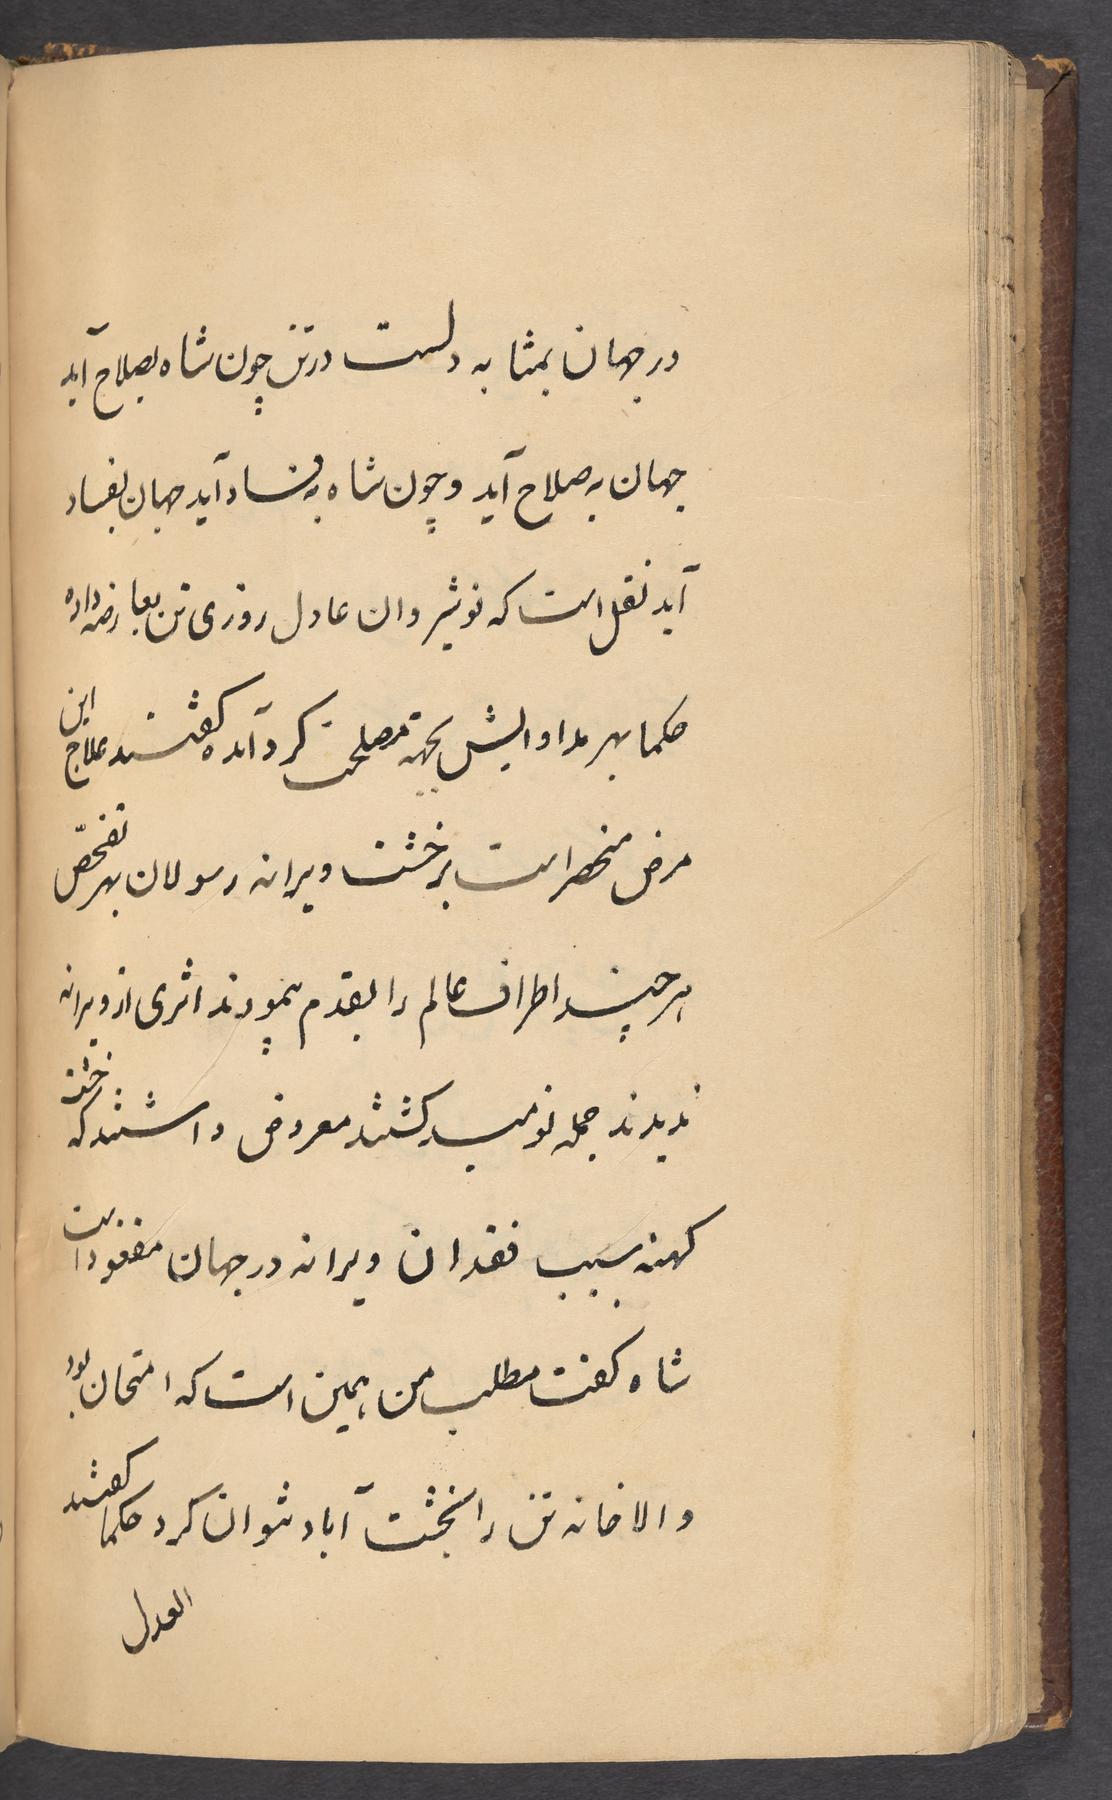 در جهان بمثابه دلست در تن چون شاه بصلاح آید
جهان به صلاح آید و چون شاه به فساد آید جهان بفساد
آید نقل است که نوشیروان عادل روزی تن بعارضه داده
حکما بهر مداوایش بجهة مصلحت کرد آمده کفتند علاج این
مرض منحصر است بر خشت ویرانه رسولان بهر تفحّص
هر چند اطراف عالم را بقدم پیمودند اثری از ویرانه
ندیدند جمله نومید کشتند معروض داشتند که خشت
کهنه بسبب فقدان ویرانه در جهان مفقود است
شاه کفت مطلب من همین است که امتحان بود
و الا خانه تن را بخشت آباد نتوان کرد حکما کفتند
العدل